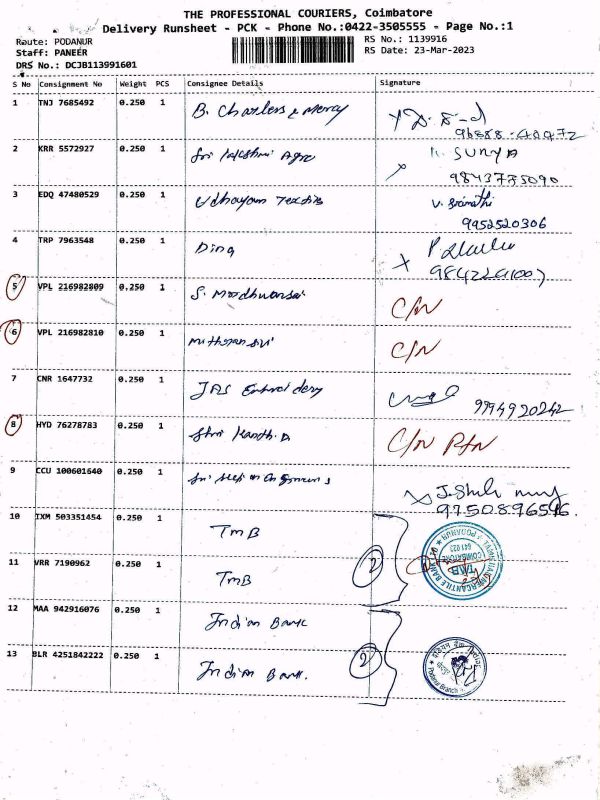 THE PROFESSIONAL COURIERS, Coimbatore
Delivery Runsheet - PCK - Phone No.:0422-3505555 - Page No.:1
Route: PODANUR
Staff: PANEER
DRS No.: DCJB113991601
RS No.: 1139916
RS Date: 23-Mar-2023
S No Consignment No Weight PCS Consignee Details Signature
1 TNJ 7685492 0.250 1 B. Charlers & Mercy
2 KRR 5572927 0.250 1 Sri Lakshmi Agro K. SURYA
9843775090
3 EDQ 47480529 0.250 1 Udhayam Textiles V.
9952520306
4 TRP 7963548 0.250 1
5 VPL 216982809 0.250 1 S. C/N
6 VPL 216982810 0.250 1 C/N
7 CNR 1647732 0.250 1 JRS Embroidery 9994920242
8 HYD 76278783 0.250 1 Shri C/N
9 CCU 100601640 0.250 1 Sri
9750896546
10 IXM 503351454 0.250 1 TMB
11 VRR 7190962 0.250 1 TMB 2
TAMILNAD MERCANTILE BANK LTD PODANUR
COIMBATORE
641 023
TMB
12 MAA 942916076 0.250 1 Indian Bank
13 BLR 4251842222 0.250 1 Indian Bank. 2
Podanur Branch